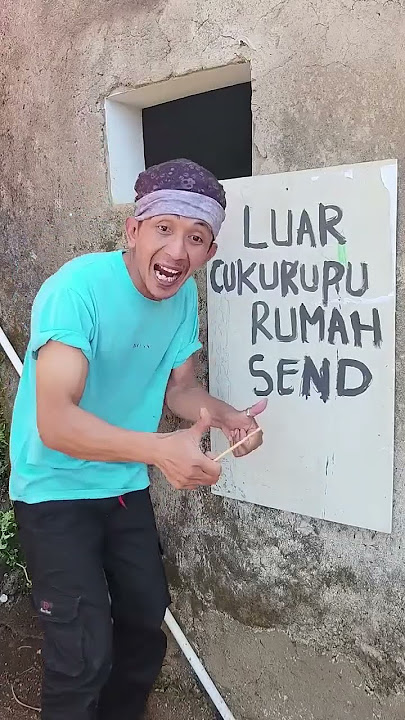 LUAR
CUKURUPU
RUMAH
SEND